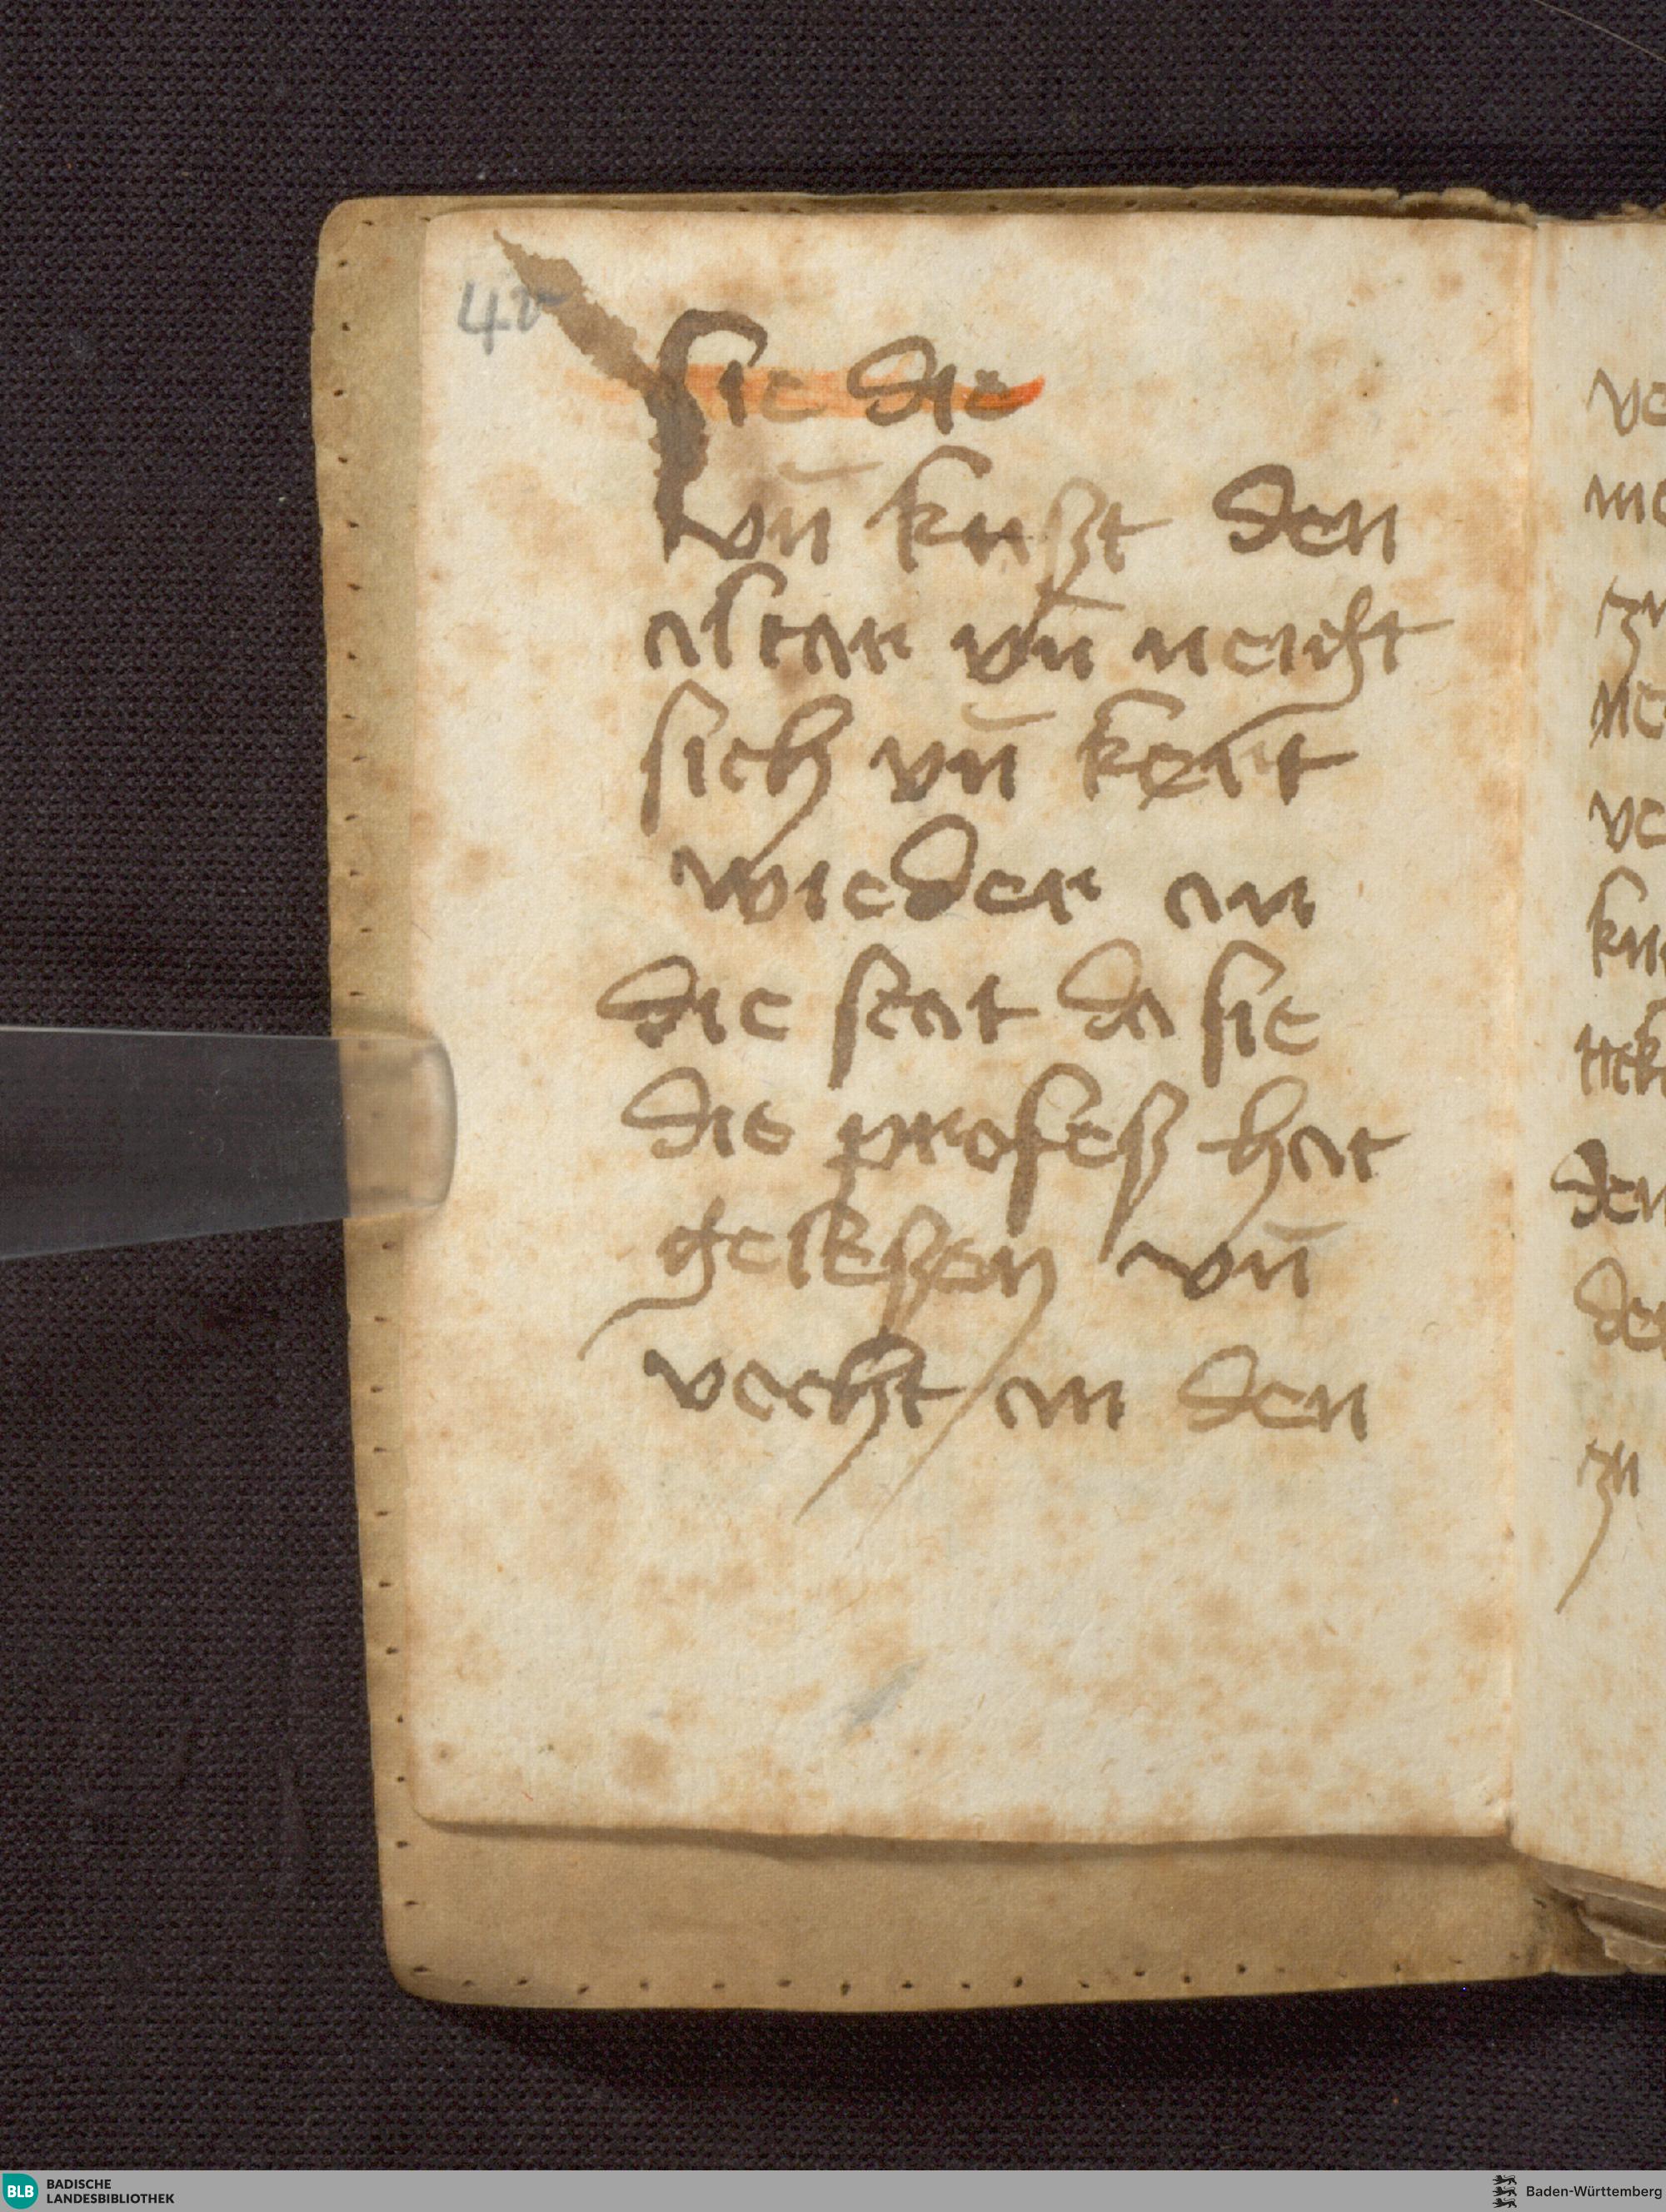 4v
sie die
vn̄ kust den
altar vn̄ neigt
sich vn̄ kert
wieder an
die stat da sie
die profeß hat
geleßen vn̄
vecht an den
BLB BADISCHE
LANDESBIBLIOTHEK
Baden-Württemberg